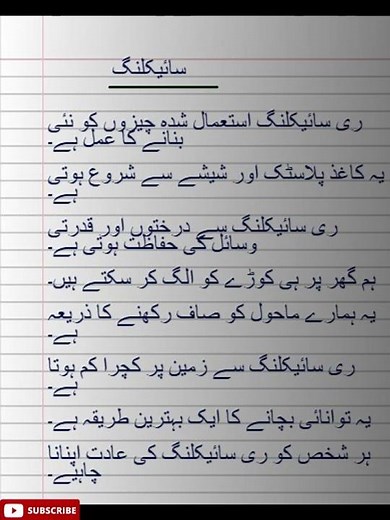 سائیکلنگ
ری سائیکلنگ استعمال شدہ چیزوں کو نئی
بنانے کا عمل ہے۔
یہ کاغذ پلاسٹک اور شیشے سے شروع ہوتی
ہے۔
ری سائیکلنگ سے درختوں اور قدرتی
وسائل کی حفاظت ہوتی ہے۔
ہم گھر پر ہی کوڑے کو الگ کر سکتے ہیں۔
یہ ہمارے ماحول کو صاف رکھنے کا ذریعہ
ہے۔
ری سائیکلنگ سے زمین پر کچرا کم ہوتا
ہے۔
یہ توانائی بچانے کا ایک بہترین طریقہ ہے۔
ہر شخص کو ری سائیکلنگ کی عادت اپنانا
چاہیے۔
SUBSCRIBE